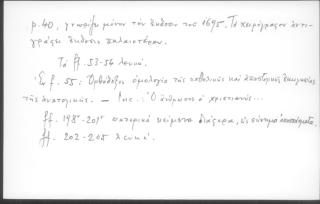 p. 40, γνωρίζω μόνον τὴν ἔκδοσιν τοῦ 1695. Τὸ χειρόγραφον ἀντι-
γράφει ἔκδοσιν παλαιοτέραν.
Τὰ ff. 53-54 λευκά.
Ἐν f. 55: Ὀρθόδοξος ὁμολογία τῆς καθολικῆς καὶ ἀποστολικῆς ἐκκλησίας
τῆς ἀνατολικῆς. — Inc.: Ὁ ἄνθρωπος ὁ χριστιανός...
ff. 198ʳ-201ᵛ πατερικὰ κείμενα διάφορα, εἰς σύντομα ἀποσπάσματα.
ff. 202-205 λευκά.